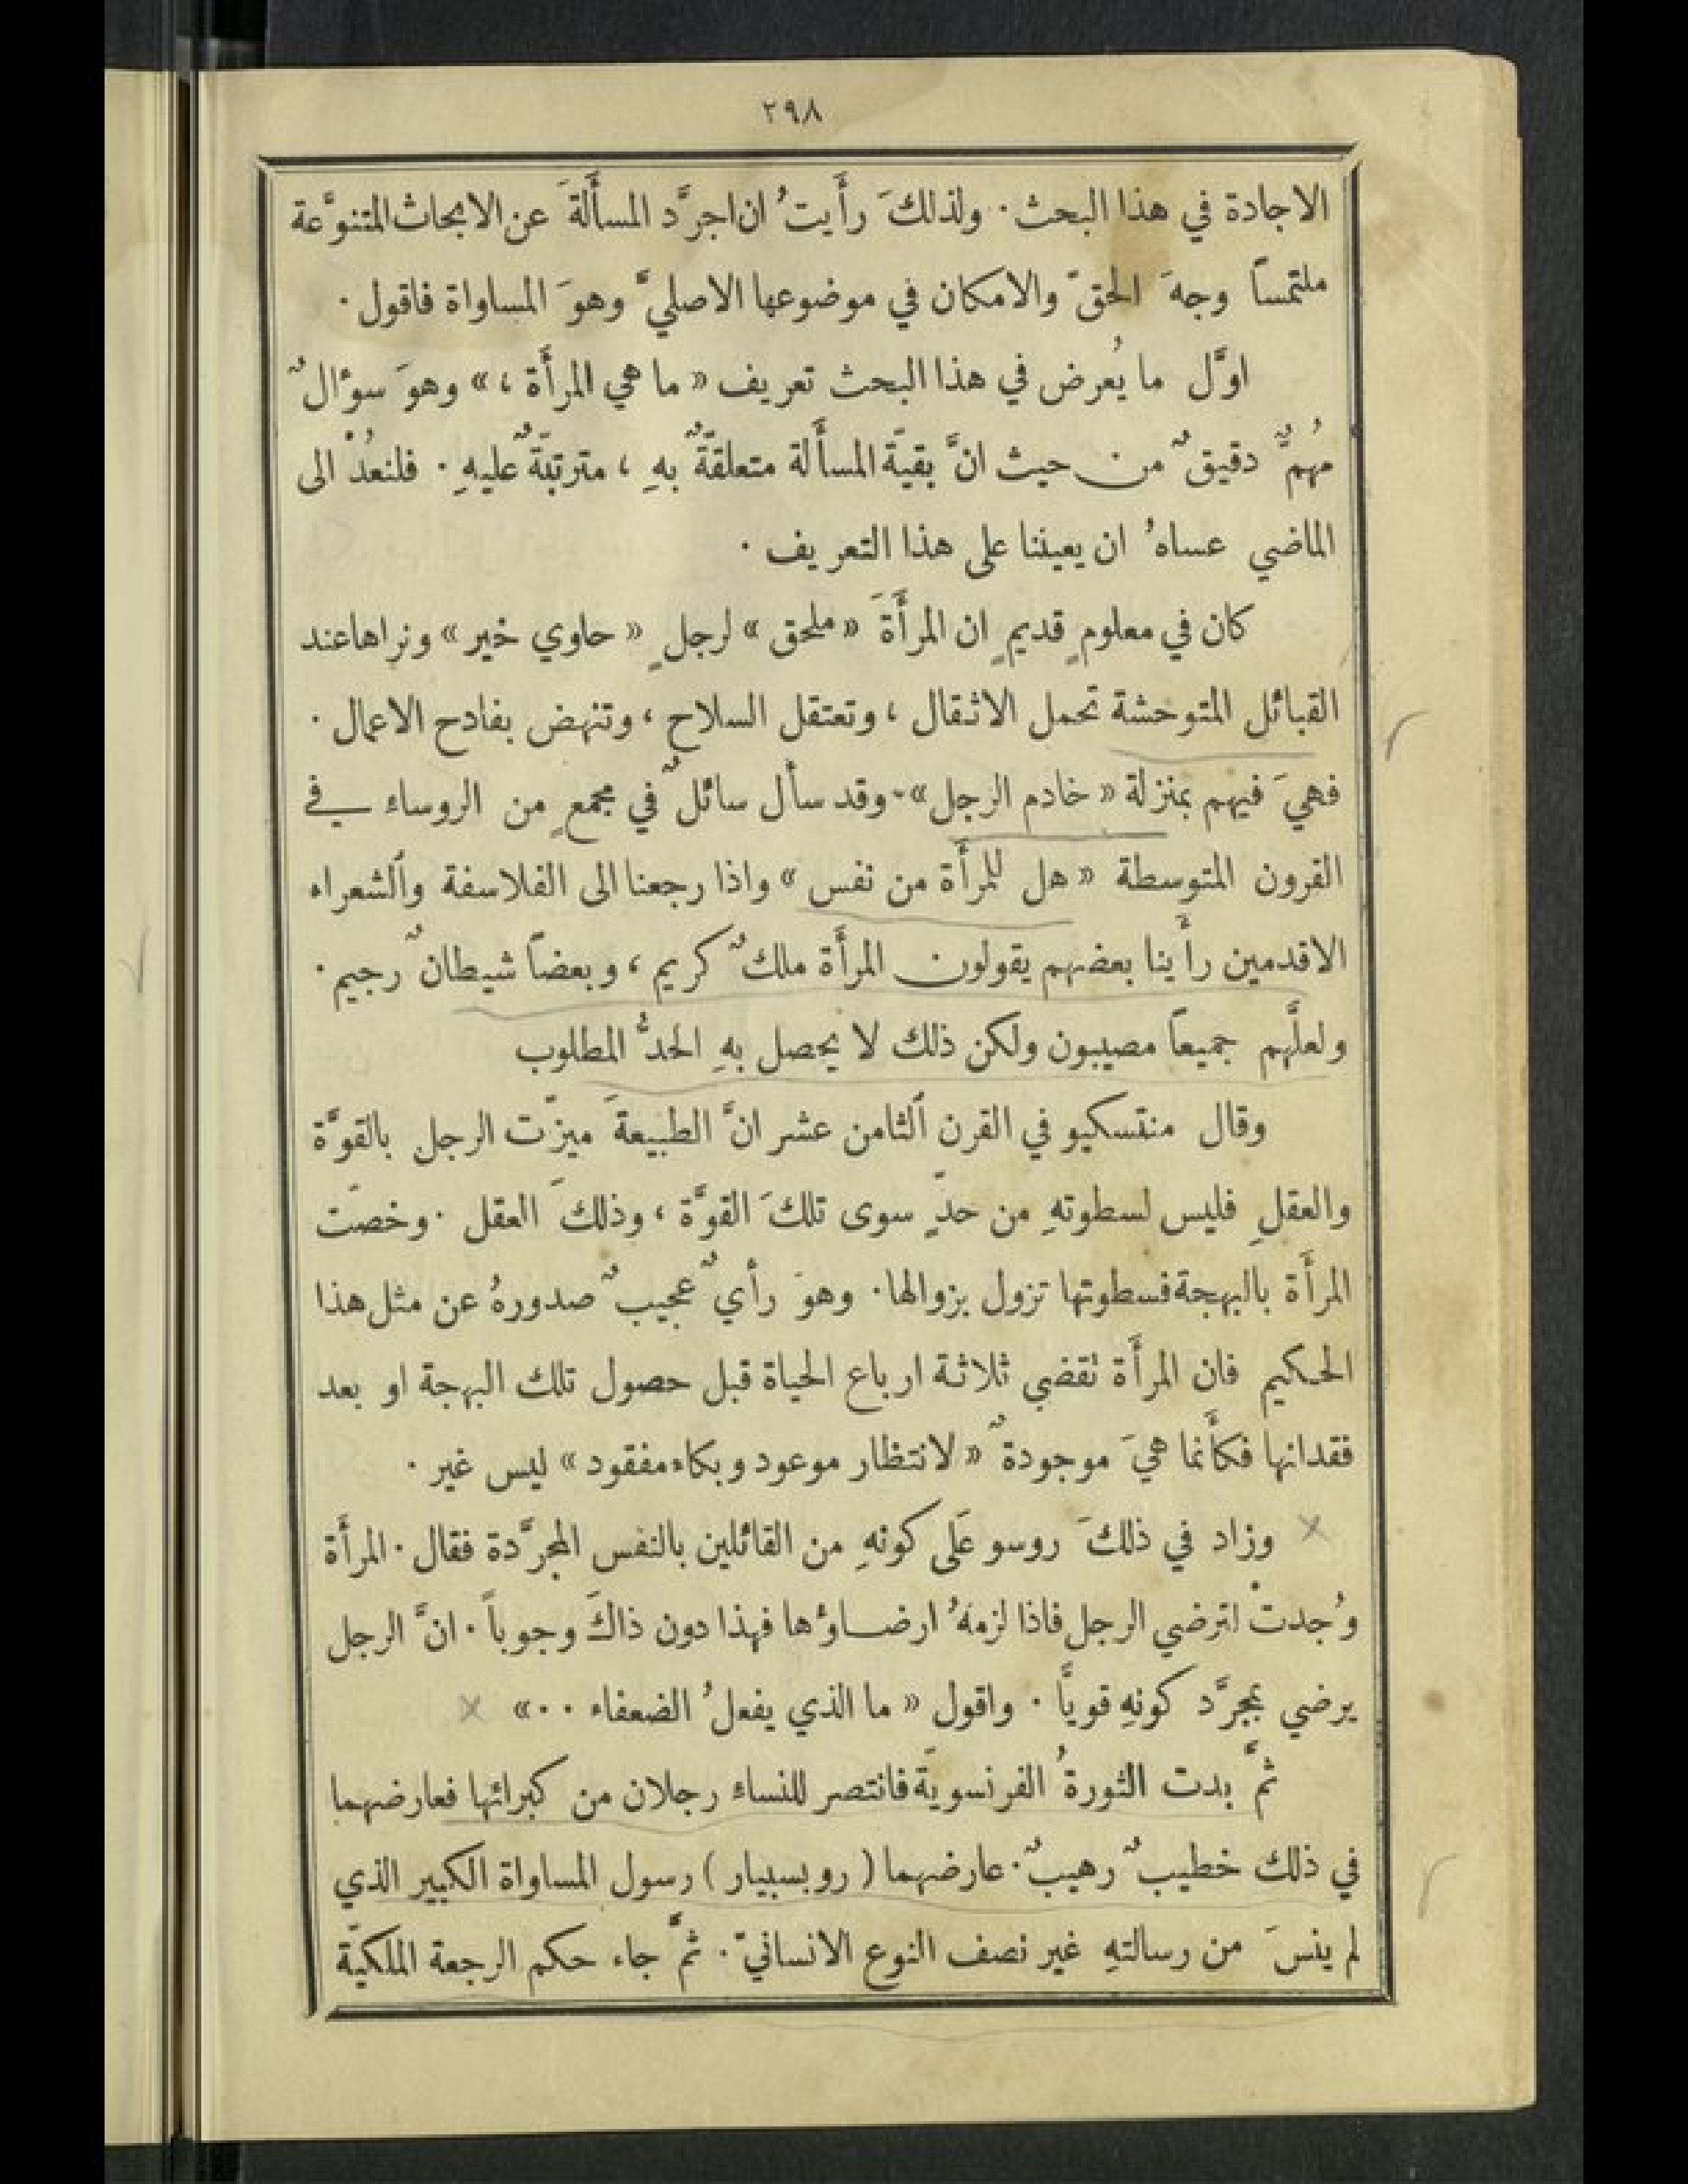 ٢٩٨
الاجادة في هذا البحث . ولذلكَ رأَيتُ ان اجرَّد المسأَلةَ عن الابحاث المتنوَّعة
ملتمسًا وجهَ الحقّ والامكان في موضوعها الاصليّ وهوَ المساواة فاقول .
اوَّل ما يُعرض في هذا البحث تعريف « ما هي المرأَة ، » وهوَ سوٴالٌ
مُهمٌّ دقيقٌ من حيث انَّ بقيَّة المسأَلة متعلقةٌ بهِ ، مترتبةٌ عليهِ . فلنعُدْ الى
الماضي عساهُ ان يعيننا على هذا التعريف .
كان في معلومٍ قديمٍ ان المرأَةَ « ملحق » لرجلٍ « حاوي خير » ونراها عند
القبائل المتوحشة تحمل الاثقال ، وتعتقل السلاح ، وتنهض بفادح الاعمال .
فهيَ فيهم بمنزلة « خادم الرجل » . وقد سأل سائلٌ في مجمعٍ من الروساء في
القرون المتوسطة « هل للمرأَة من نفس » واذا رجعنا الى الفلاسفة والشعراء
الاقدمين رأَينا بعضهم يقولون المرأَة ملكٌ كريم ، وبعضًا شيطانٌ رجيم .
ولعلَّهم جميعًا مصيبون ولكن ذلك لا يحصل بهِ الحدُّ المطلوب
وقال منتسكيو في القرن الثامن عشر انَّ الطبيعةَ ميزّت الرجل بالقوَّة
والعقلِ فليس لسطوتهِ من حدٍّ سوى تلكَ القوَّة ، وذلكَ العقل . وخصَت
المرأَة بالبهجة فسطوتها تزول بزوالها . وهوَ رأيٌ عجيبٌ صدورهُ عن مثل هذا
الحكيم فان المرأَة تقضي ثلاثة ارباع الحياة قبل حصول تلك البهجة او بعد
فقدانها فكأَنما هيَ موجودةٌ « لانتظار موعود وبكاء مفقود » ليس غير .
وزاد في ذلكَ روسو عَلى كونهِ من القائلين بالنفس المجرَّدة فقال . المرأَة
وُجدتْ لترضي الرجل فاذا لزمهُ ارضاوٴها فهذا دون ذاكَ وجوباً . انَّ الرجل
يرضي بمجرَّد كونهِ قويًّا . واقول « ما الذي يفعلُ الضعفاء . . »
ثمَّ بدت الثورةُ الفرنسويَّة فانتصر للنساء رجلان من كبرائها فعارضهما
في ذلك خطيبٌ رهيبٌ . عارضهما ( روبسبيار ) رسول المساواة الكبير الذي
لم ينسَ من رسالتهِ غير نصف النوع الانسانيّ . ثمَّ جاء حكم الرجعة الملكيَّة